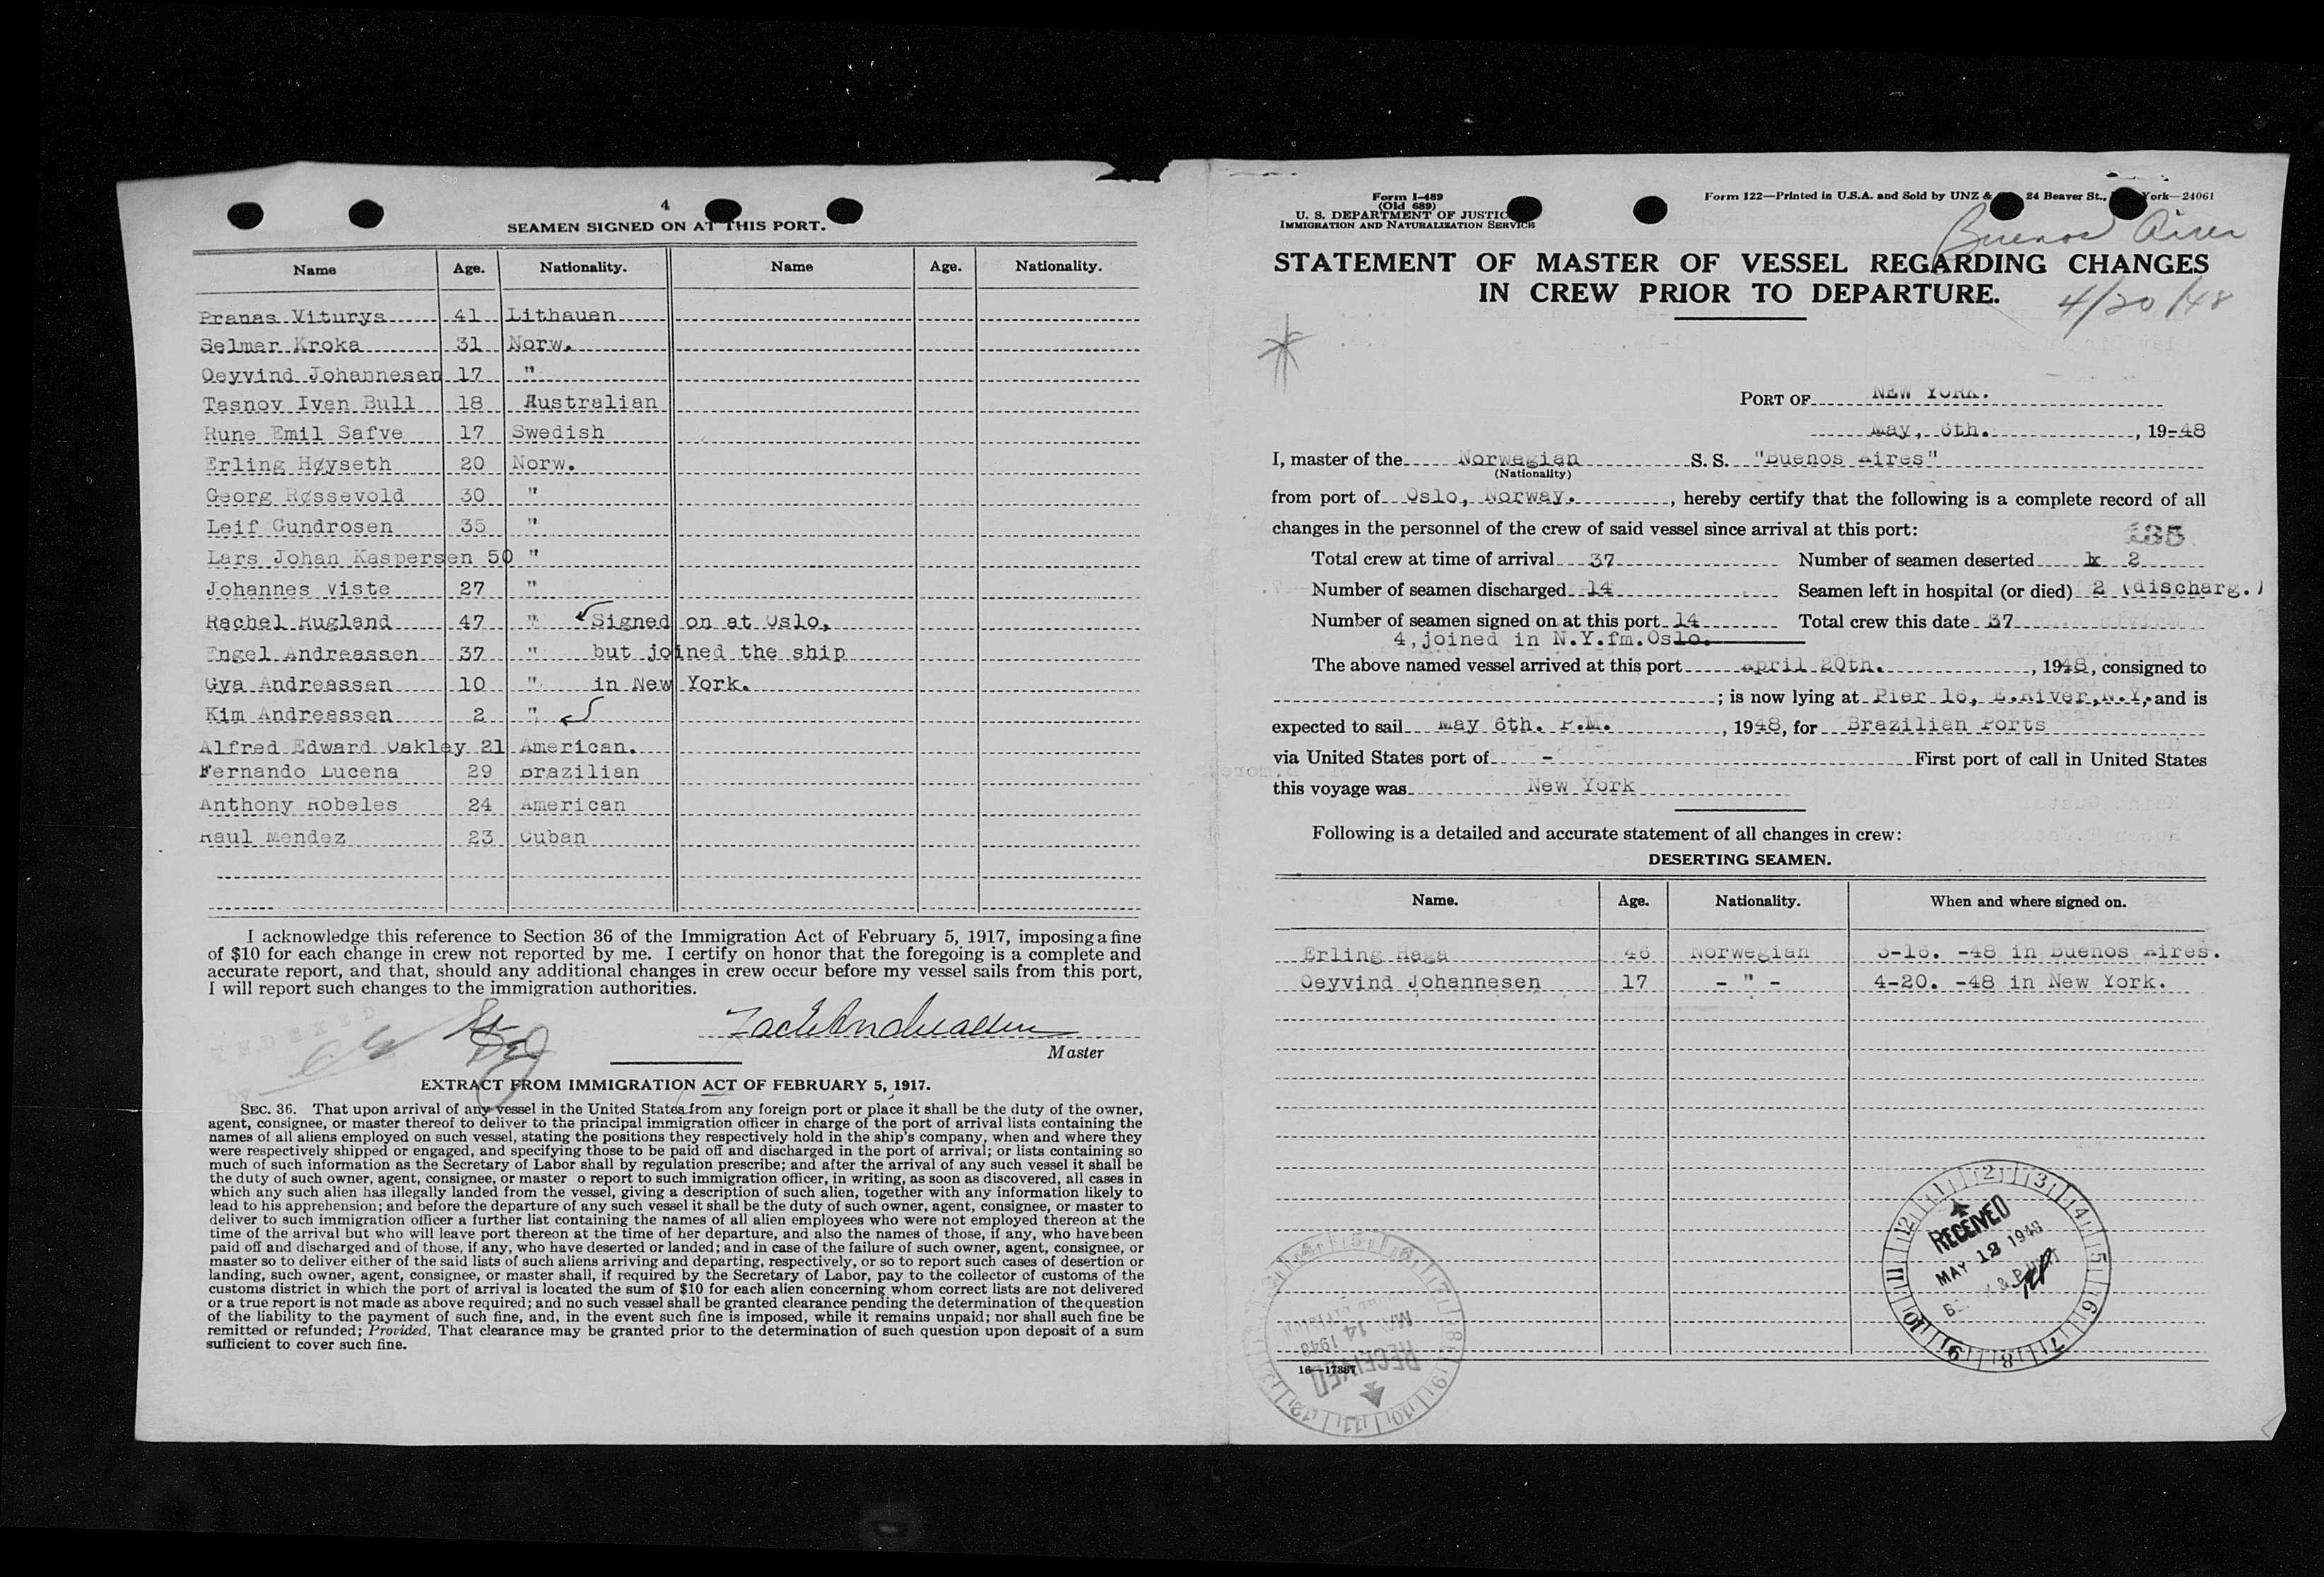 4
SEAMEN SIGNED ON AT THIS PORT.
Name Age. Nationality. Name Age. Nationality.
Pranas Viturys 41 Lithauen
Selmer Kroka 31 Norw.
Oeyvind Johannesen 17 "
Tasnov Ivan Bull 18 Australian
Rune Emil Safve 17 Swedish
Erling Høyseth 20 Norw.
Georg Røssevold 30 "
Leif Gundrosen 35 "
Lars Johan Kaspersen 50 "
Johannes Viste 27 "
Rachel Rugland 47 " Signed on at Oslo,
Engel Andreassen 37 " but joined the ship
Gya Andreassen 10 " in New York.
Kim Andreassen 2 "
Alfred Edward Oakley 21 American.
Fernando Lucena 29 Brazilian
Anthony Robeles 24 American
Raul Mendez 23 Cuban
I acknowledge this reference to Section 36 of the Immigration Act of February 5, 1917, imposing a fine
of $10 for each change in crew not reported by me. I certify on honor that the foregoing is a complete and
accurate report, and that, should any additional changes in crew occur before my vessel sails from this port,
I will report such changes to the immigration authorities.
Master
EXTRACT FROM IMMIGRATION ACT OF FEBRUARY 5, 1917.
SEC. 36. That upon arrival of any vessel in the United States from any foreign port or place it shall be the duty of the owner,
agent, consignee, or master thereof to deliver to the principal immigration officer in charge of the port of arrival lists containing the
names of all aliens employed on such vessel, stating the positions they respectively hold in the ship's company, when and where they
were respectively shipped or engaged, and specifying those to be paid off and discharged in the port of arrival; or lists containing so
much of such information as the Secretary of Labor shall by regulation prescribe; and after the arrival of any such vessel it shall be
the duty of such owner, agent, consignee, or master o report to such immigration officer, in writing, as soon as discovered, all cases in
which any such alien has illegally landed from the vessel, giving a description of such alien, together with any information likely to
lead to his apprehension; and before the departure of any such vessel it shall be the duty of such owner, agent, consignee, or master to
deliver to such immigration officer a further list containing the names of all alien employees who were not employed thereon at the
time of the arrival but who will leave port thereon at the time of her departure, and also the names of those, if any, who have been
paid off and discharged and of those, if any, who have deserted or landed; and in case of the failure of such owner, agent, consignee, or
master so to deliver either of the said lists of such aliens arriving and departing, respectively, or so to report such cases of desertion or
landing, such owner, agent, consignee, or master shall, if required by the Secretary of Labor, pay to the collector of customs of the
customs district in which the port of arrival is located the sum of $10 for each alien concerning whom correct lists are not delivered
or a true report is not made as above required; and no such vessel shall be granted clearance pending the determination of the question
of the liability to the payment of such fine, and, in the event such fine is imposed, while it remains unpaid; nor shall such fine be
remitted or refunded; Provided, That clearance may be granted prior to the determination of such question upon deposit of a sum
sufficient to cover such fine.
Form I-489
(Old 689)
U. S. DEPARTMENT OF JUSTIC
IMMIGRATION AND NATURALIZATION SERVICE
Form 122—Printed in U.S.A. and Sold by UNZ & 24 Beaver St., York—24061
Buenos Aires
STATEMENT OF MASTER OF VESSEL REGARDING CHANGES
IN CREW PRIOR TO DEPARTURE.
4/20/48
PORT OF NEW YORK.
May, 6th. , 19-48
I, master of the Norwegian S. S. "Buenos Aires"
(Nationality)
from port of Oslo, Norway. , hereby certify that the following is a complete record of all
changes in the personnel of the crew of said vessel since arrival at this port:
135
Total crew at time of arrival 37 Number of seamen deserted 2
Number of seamen discharged 14 Seamen left in hospital (or died) 2 (discharg.)
Number of seamen signed on at this port 14 Total crew this date 37
4, joined in N.Y.fm.Oslo.
The above named vessel arrived at this port April 20th. , 1948, consigned to
; is now lying at Pier 16, E.River,N.Y. and is
expected to sail May 6th. P.M. , 1948, for Brazilian Ports
via United States port of - First port of call in United States
this voyage was New York
Following is a detailed and accurate statement of all changes in crew:
DESERTING SEAMEN.
Name. Age. Nationality. When and where signed on.
Erling Haga 46 Norwegian 3-16. -48 in Buenos Aires.
Oeyvind Johannesen 17 - " - 4-20. -48 in New York.
RECEIVED
MAY 12 1948
RECEIVED
MAY 14 1948
16—17887